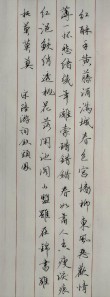 红酥手黄藤酒满城春色宫墙柳东风恶欢情
薄一怀愁绪几年离索错错错春如旧人空瘦泪痕
红浥鲛绡透桃花落闲池阁山盟虽在锦书难
托莫莫莫
宋陆游词钗头凤